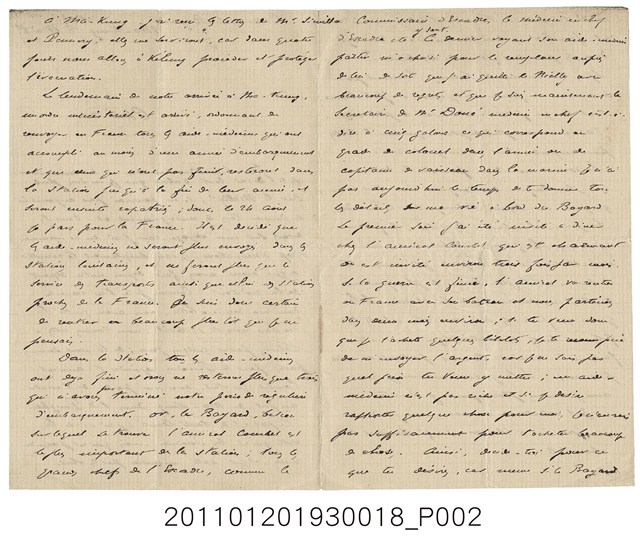 à Ma-Kung j'ai reçu les lettres de Mr Commissaire d'Escadre, le médecin en chef
et ; elles me serviront, car dans quatre
jours nous allons à Kélung procéder et protéger
l'évacuation.
Le lendemain de notre arrivée à Ma-Kung,
un ordre ministériel est arrivé, ordonnant de
renvoyer en France tous les aide-médecins qui ont
accompli au moins une année d'embarquement
et que ceux qui n'ont pas fini, resteront dans
la station jusqu'à la fin de leur année et
seront ensuite rapatriés; donc, le 24 Août
je pars pour la France. Il est décidé que
les aide-médecins ne seront plus envoyés dans les
stations lointaines, et ne feront plus que le
service des transports ainsi que celui des stations
proches de la France. Je suis donc certain
de rentrer en beaucoup plus tôt que je ne
pensais.
Dans la station, tous les aide-médecins
ont déjà fini et nous ne restons plus que trois
qui n'avons pas terminé notre période régulière
d'embarquement. Or, le Bayard, bateau
sur lequel se trouve l'amiral Courbet est
le plus important de la station; tous les
grands chefs de l'Escadre, comme le
d'Escadre etc y sont. Le dernier voyant son aide-médecin
partir m'a choisi pour le remplacer auprès
de lui de sorte que j'ai quitté le Nielly avec
beaucoup de regrets et que je suis maintenant le
Secrétaire de Mr Doué médecin en chef c'est-à-
dire à cinq galons ce qui correspond au
grade de colonel dans l'armée ou de
capitaine de vaisseau dans la marine. Je n'ai
pas aujourd'hui le temps de te donner tous
les détails de ma vie à bord du Bayard
Le premier soir j'ai été invité à dîner
chez l'amiral Courbet qui est charmant
on est invité environ trois fois par mois.
Si la guerre est finie, l'amiral va rentrer
en France avec son bateau et nous partirons
dans deux mois environ; si tu veux donc
que je t'achète quelques bibelots, je te
de m'envoyer l'argent, car je ne sais pas
quel prix tu veux y mettre; un aide-
médecin n'est pas riche et si je désire
rapporter quelque chose pour moi, je n'aurai
pas suffisamment pour t'acheter beaucoup
de choses. Ainsi, décide-toi pour ce
que tu désires, car même si le Bayard
201101201930018_P002